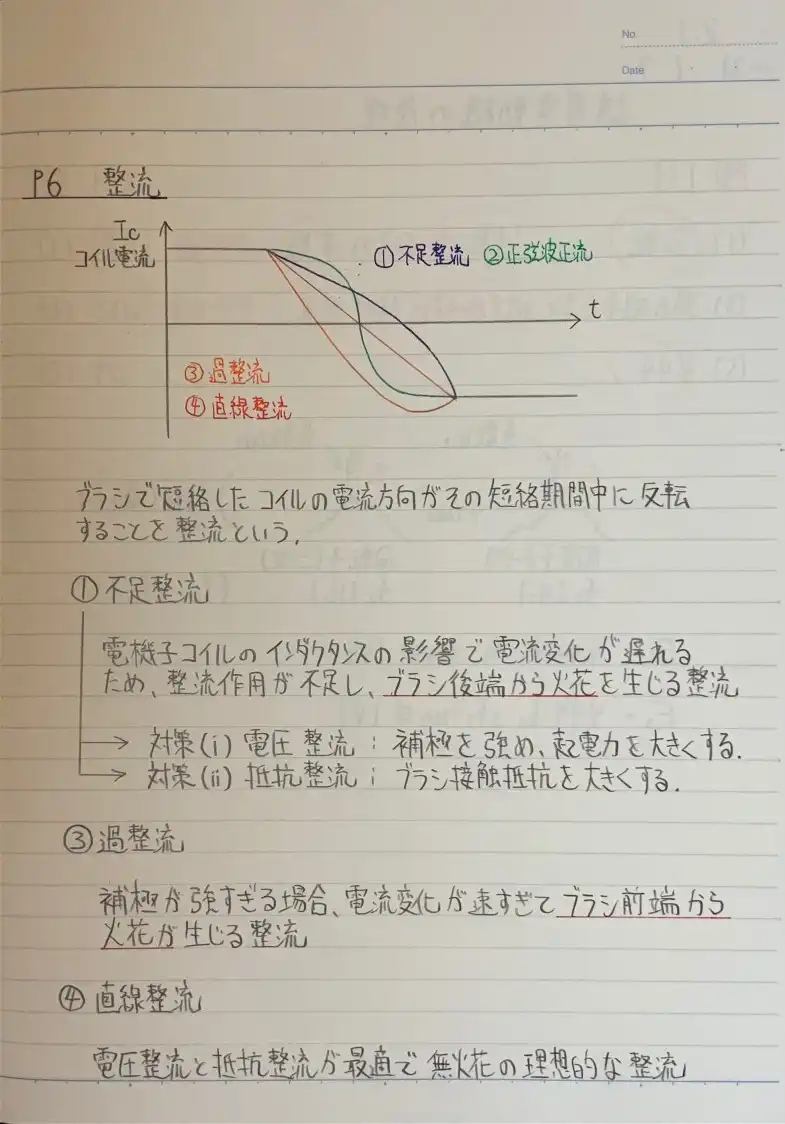 No.
Date
P6 整流
Ic
コイル電流
①不足整流 ②正弦波正流
t
③過整流
④直線整流
ブラシで短絡したコイルの電流方向がその短絡期間中に反転
することを整流という.
①不足整流
電機子コイルのインダクタンスの影響で電流変化が遅れる
ため、整流作用が不足し、ブラシ後端から火花を生じる整流
対策(i) 電圧整流 : 補極を強め、起電力を大きくする.
対策(ii) 抵抗整流 : ブラシ接触抵抗を大きくする.
③過整流
補極が強すぎる場合、電流変化が速すぎてブラシ前端から
火花が生じる整流
④直線整流
電圧整流と抵抗整流が最適で無火花の理想的な整流